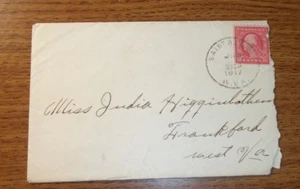 1917
W.VA.
Miss India Higginbotham
Frankford
West Va